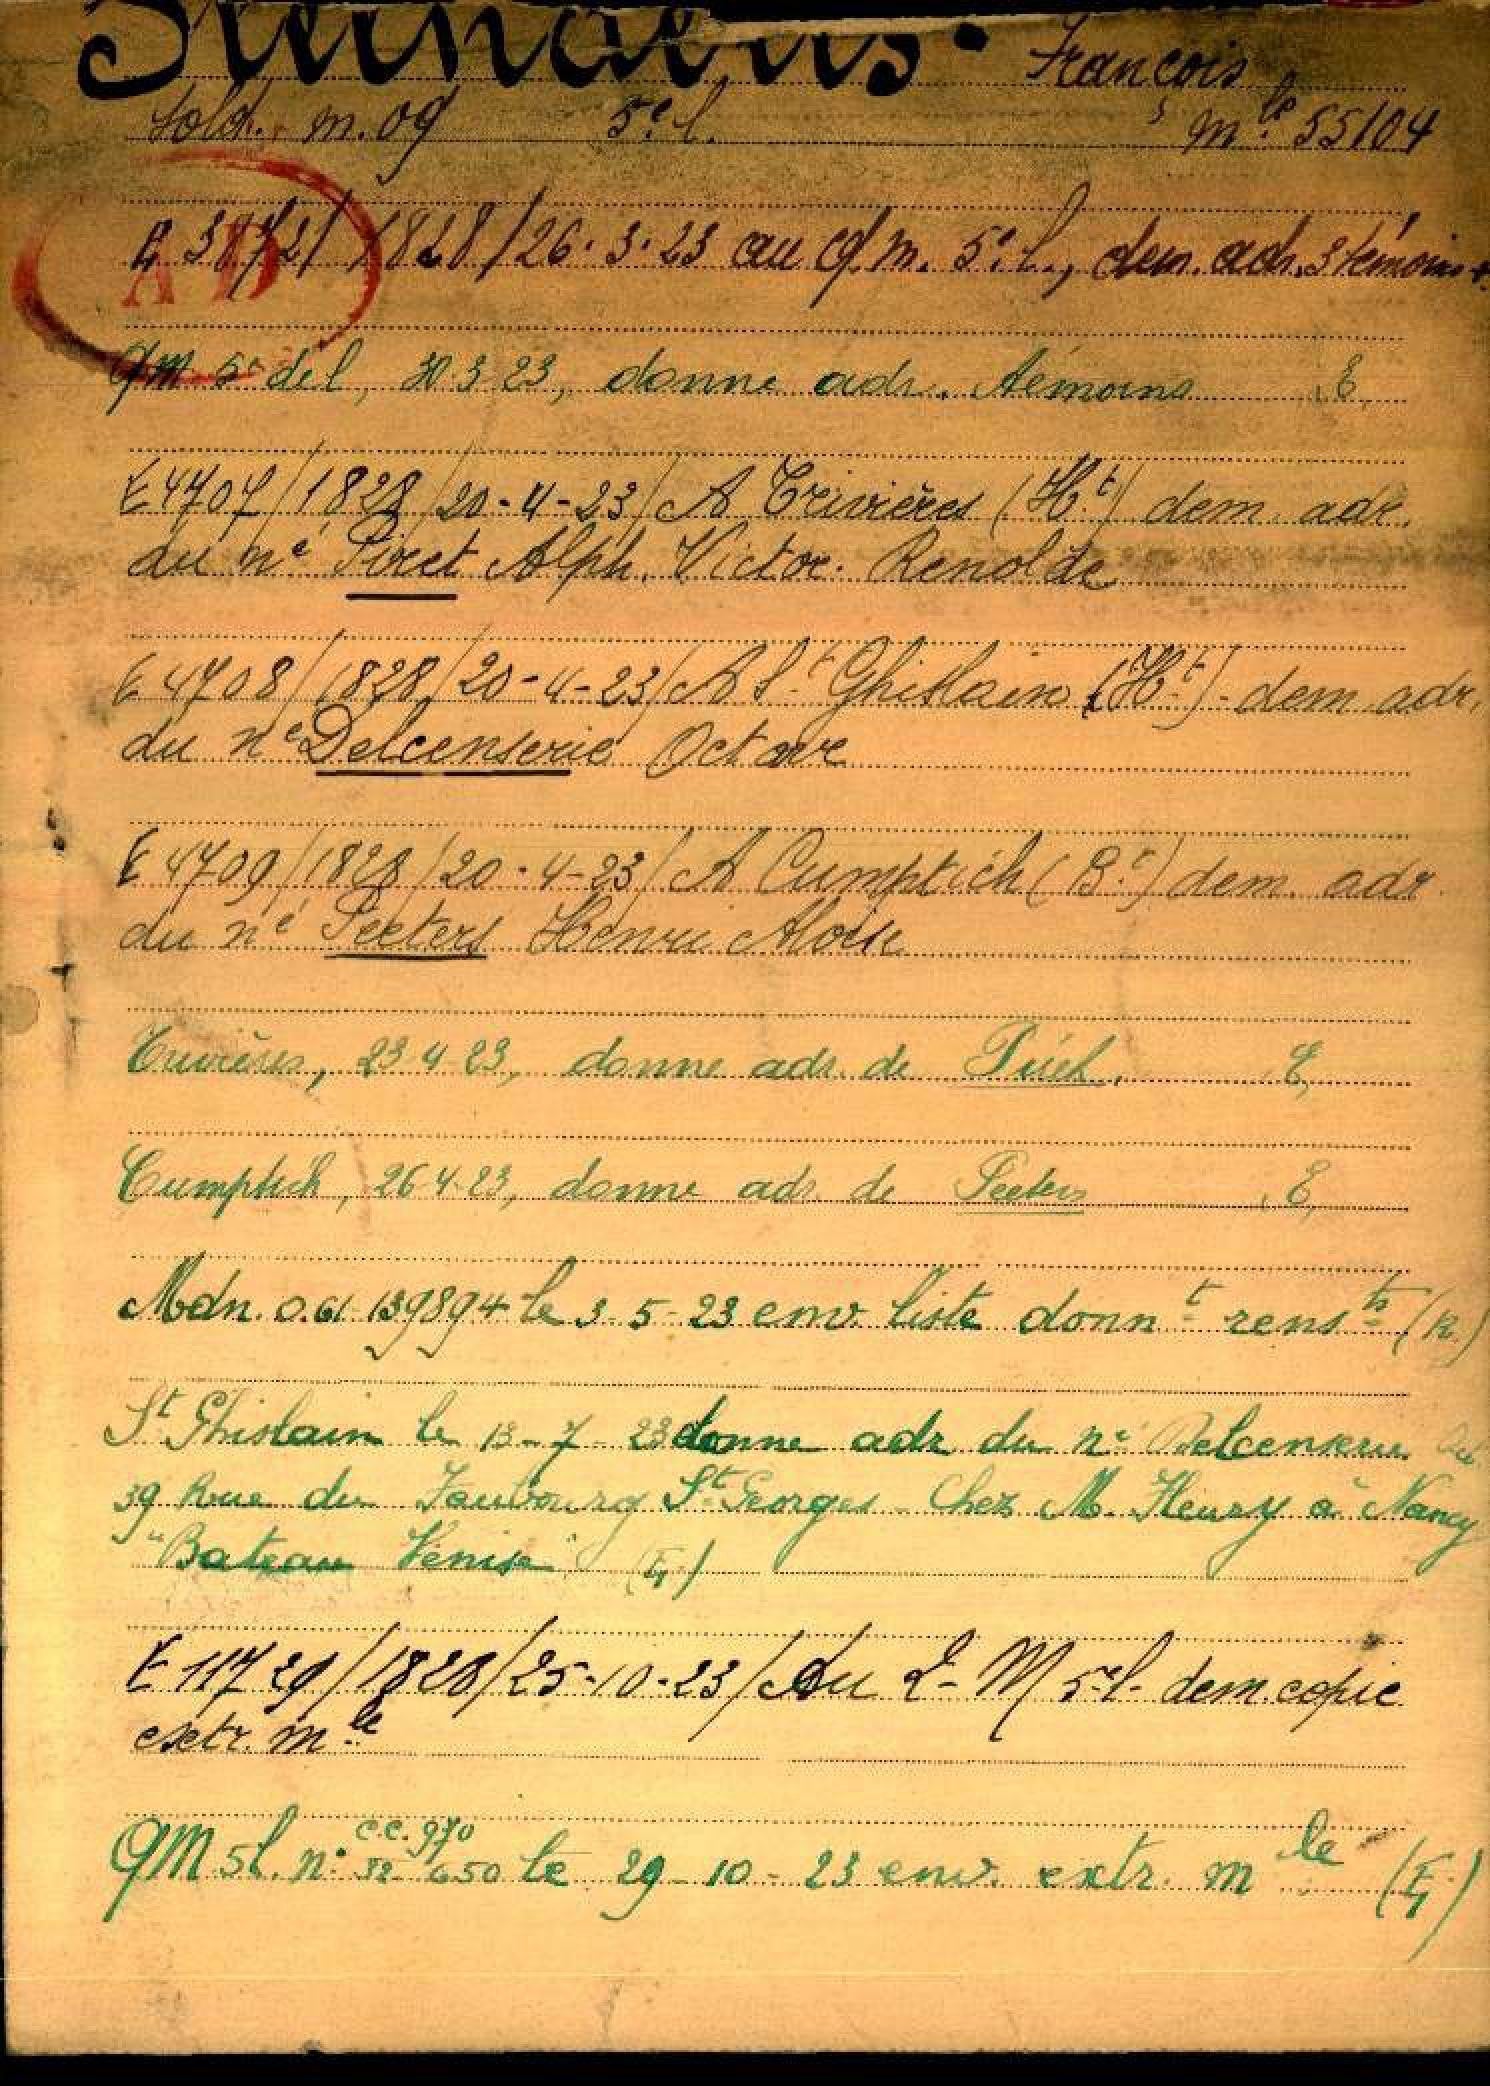 François
Sold. m. 09 5e l. mle 55104
A D
E 3872/1828/26.3.23 au Q.m. 5e l., dem. adr. 3 témoins
QM 5e de l, 30.3.23, donne adr. témoins E
E 4707/1828/20-4-23/ A Trivières (Ht) dem. adr.
du né Piret Alph. Victor. Renolde
E 4708/1828/20-4-23/ A St Ghislain (Ht) - dem adr.
du né Delcenserie Octave
E 4709/1828/20-4-23/ A Cumptich (Bt) dem. adr.
du né Peeters Henri Aloïse
Trivières, 23-4-23, donne adr. de Piret. E
Cumptich, 26-4-23, donne adr. de Peeters E
Mdn. 0.61-139894 le 3-5-23 env. liste donnt rensts (R)
St Ghislain le 13-7-23 donne adr du né Delcenserie Oct
39 Rue du Faubourg St Georges - Chez M. Fleury à Nancy
"Bateau Vénise" (E)
E 11729/1828/25-10-23/ Au Q-M 5 l. dem. copie
extr. mle
C.C. 970
QM 5 l. n° 32-650 le 29-10-23 env. extr. mle (E)